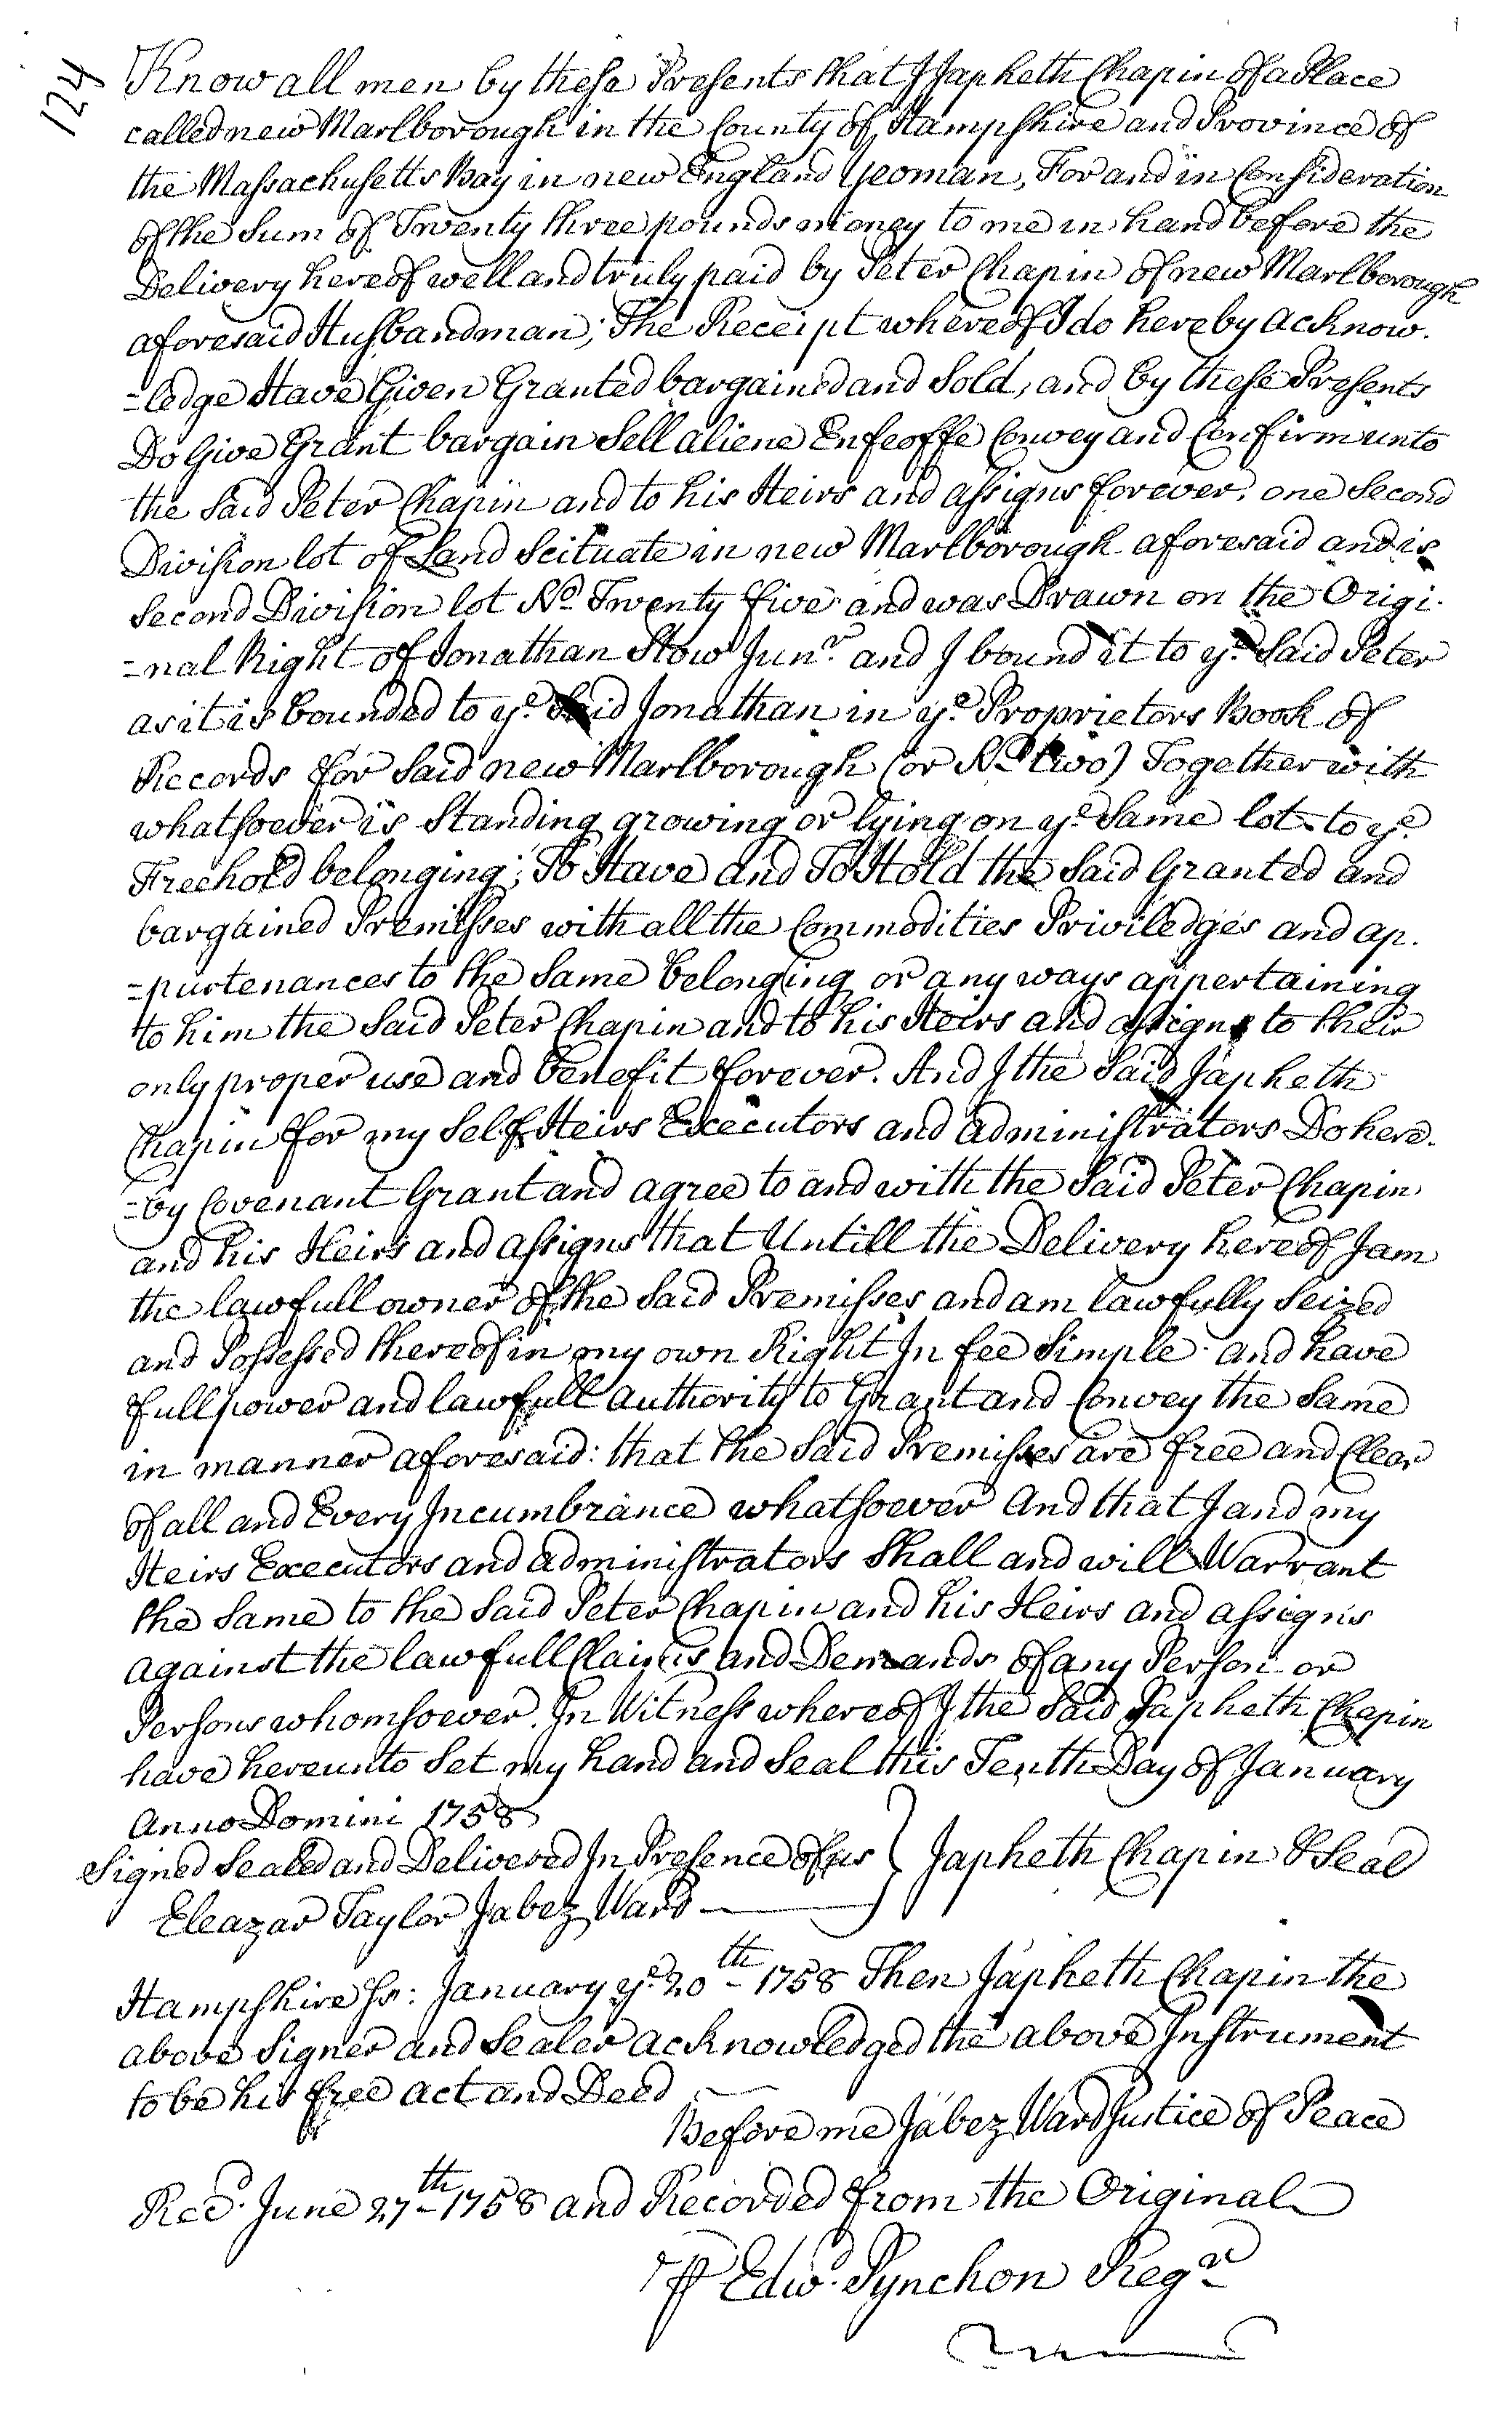 124
Know all men by these Presents that I Japheth Chapin of a Place
called new Marlborough in the County of Hampshire and Province of
the Massachusetts Bay in new England Yeoman, For and in Consideration
of the Sum of Twenty three pounds money to me in hand before the
Delivery hereof well and truly paid by Peter Chapin of new Marlborough
aforesaid Husbandman; The Receipt whereof I do hereby acknow-
=ledge Have Given Granted bargained and Sold, and by these Presents
Do Give Grant bargain Sell aliene Enfeoffe Convey and Confirm unto
the Said Peter Chapin and to his Heirs and assigns forever, one Second
Division lot of Land Scituate in new Marlborough aforesaid and is
Second Division lot No. Twenty five and was Drawn on the Origi-
=nal Right of Jonathan Stow Junr. and I bound it to ye. Said Peter
as it is bounded to ye. Said Jonathan in ye. Proprietors Book of
Records for Said new Marlborough (or No. two) Together with
whatsoever is Standing growing or lying on ye. Same lot to ye.
Freehold belonging; To Have and To Hold the Said Granted and
bargained Premisses with all the Commodities Priviledges and ap-
=purtenances to the Same belonging or any ways appertaining
to him the Said Peter Chapin and to his Heirs and assigns to their
only proper use and benefit forever. And I the Said Japheth
Chapin for my Self Heirs Executors and administrators Do here-
=by Covenant Grant and agree to and with the Said Peter Chapin
and his Heirs and assigns that Untill the Delivery hereof I am
the lawfull owner of the Said Premisses and am lawfully Seized
and Possessed thereof in my own Right In fee Simple and have
full power and lawfull authority to Grant and Convey the Same
in manner aforesaid: that the Said Premisses are free and Clear
of all and Every Incumbrance whatsoever And that I and my
Heirs Executors and administrators Shall and will Warrant
the Same to the Said Peter Chapin and his Heirs and assigns
against the lawfull Claims and Demands of any Person or
Persons whomsoever. In Witness whereof I the Said Japheth Chapin
have hereunto Set my hand and Seal this Tenth Day of January
Anno Domini 1758
Signed Sealed and Delivered In Presence of us } Japheth Chapin & Seal
Eleazar Taylor Jabez Ward
Hampshire Ss: January ye. 20th 1758 Then Japheth Chapin the
above Signer and Sealer acknowledged the above Instrument
to be his free act and Deed
Before me Jabez Ward Justice of Peace
Recd. June 27th 1758 and Recorded from the Original
℔ Edwd. Pynchon Regr